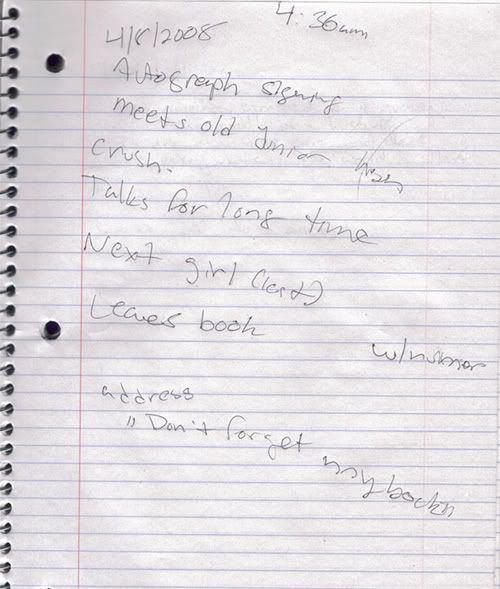 4:36am
4/8/2008
Autograph signing
meets old Junior high
crush.
Talks for long time
Next girl (last)
Leaves book
w/number
address
"Don't forget my book"